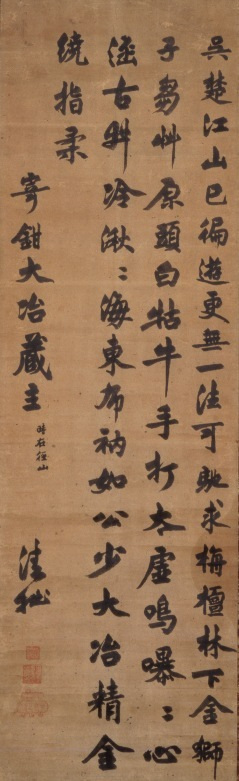 呉楚江山已徧遊更無一法可馳求栴檀林下金獅
子芻艸原頭白牯牛手打太虚鳴嚗〻心
涵古井冷湫〻海東布衲如公少大冶精金
繞指柔
寄鉗大冶蔵主
時在徑山
清拙